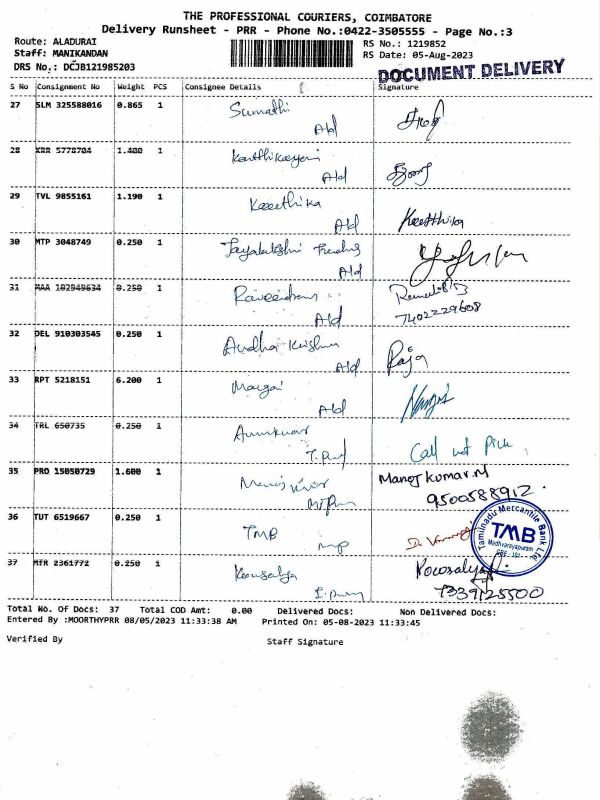 THE PROFESSIONAL COURIERS, COIMBATORE
Delivery Runsheet - PRR - Phone No.:0422-3505555 - Page No.:3
Route: ALADURAI
Staff: MANIKANDAN
DRS No.: DCJB121985203
RS No.: 1219852
RS Date: 05-Aug-2023
DOCUMENT DELIVERY
S No Consignment No Weight PCS Consignee Details Signature
27 SLM 325588016 0.865 1 Sumathi
Ald
28 KRR 5778704 1.400 1 Karthikayeni
Ald
29 TVL 9855161 1.190 1 Keerthika Keerthika
Ald
30 MTP 3048749 0.250 1 Jayalakshmi
Ald
31 MAA 102949634 0.250 1 Raveendran
Ald 7402229608
32 DEL 910303545 0.250 1 Krishna Raja
Ald
33 RPT 5218151 6.200 1
Ald
34 TRL 650735 0.250 1 Arunkumar Call not Pick
35 PRO 15050729 1.600 1 Manoj Kumar.M
9500588912
36 TUT 6519667 0.250 1 TMB
Tamilnadu Mercantile Bank Ltd
TMB
Madhvarayapuram
37 MTR 2361772 0.250 1 Kousalya
7339125500
Total No. Of Docs: 37 Total COD Amt: 0.00 Delivered Docs: Non Delivered Docs:
Entered By :MOORTHYPRR 08/05/2023 11:33:38 AM Printed On: 05-08-2023 11:33:45
Verified By Staff Signature